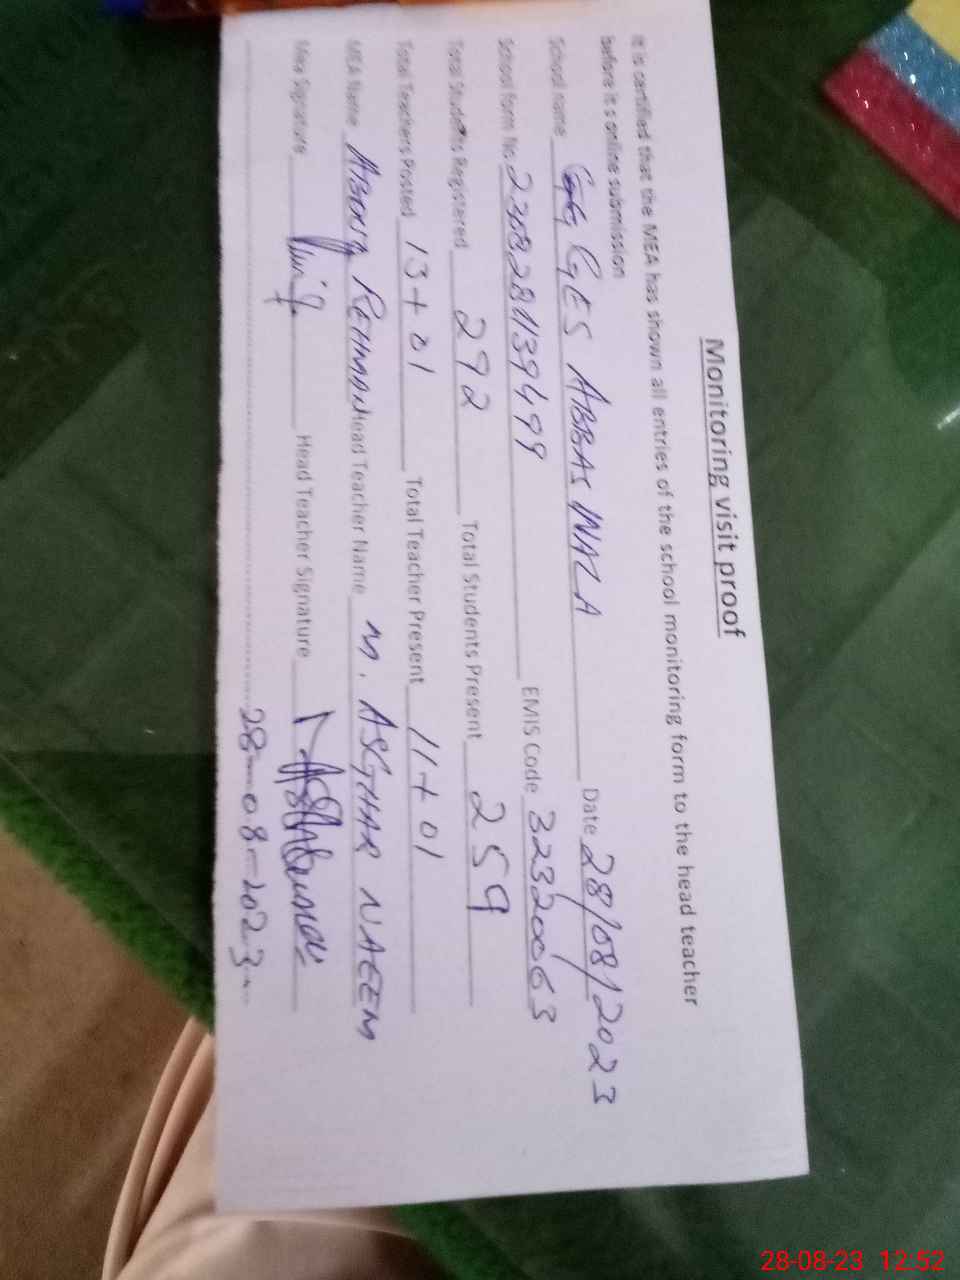 Monitoring visit proof
It is certified that the MEA has shown all entries of the school monitoring form to the head teacher
before it s online submission
School name GES ABBAS WALA Date 28/08/2023
School form No. EMIS Code 32320063
Total Students Registered 292 Total Students Present 259
Total Teachers Posted 13+01 Total Teacher Present 11+01
MEA Name REHMAN Head Teacher Name M. ASGHAR NAEEM
Mea Signature Head Teacher Signature
28-08-2023
28-08-23 12:52